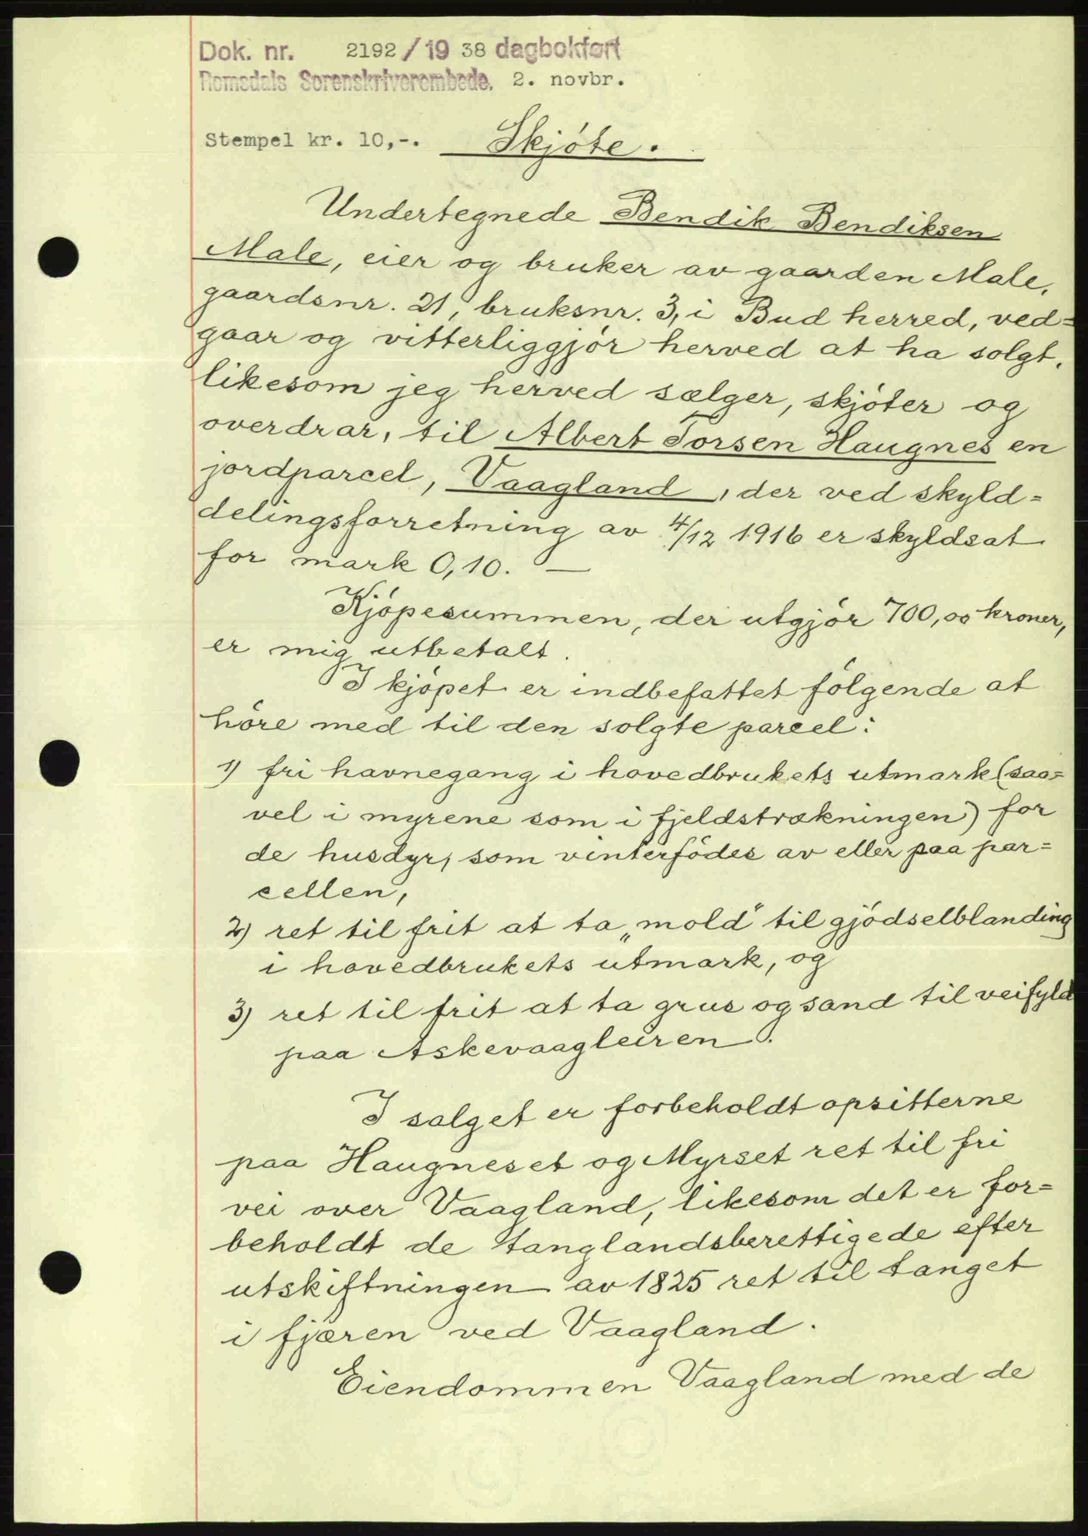 Dok. nr. 2192/19 38 dagbokført
Romsdals Sorenskriverembede. 2. novbr.
Stempel kr. 10,-. Skjóte.
Undertegnede Bendik Bendiksen
Male, eier og bruker av gaarden Male,
gaardsnr. 21, bruksnr. 3, i Bud herred, ved=
gaar og vitterliggjór herved at ha solgt,
likesom jeg herved sælger, skjóter og
overdrar, til Albert Torsen Haugnes en
jordparcel, Vaagland, der ved skyld=
delingsforretning av 4/12 1916 er skyldsat
for mark 0,10. —
Kjópesummen, der utgjór 700,00 kroner,
er mig utbetalt.
I kjópet er indbefattet fólgende at
hóre med til den solgte parcel:
1) fri havnegang i hovedbrukets utmark (saa=
vel i myrene som i fjeldstrækningen) for
de husdyr, som vinterfódes av eller paa par=
cellen,
2) ret til frit at ta „mold" til gjódselblanding
i hovedbrukets utmark, og
3) ret til frit at ta grus og sand til veifyld
paa Askevaagleiren.
I salget er forbeholdt opsitterne
paa Haugneset og Myrset ret til fri
vei over Vaagland, likesom det er for=
beholdt de tanglandsberettigede efter
utskiftningen av 1825 ret til tanget
i fjæren ved Vaagland.
Eiendommen Vaagland med de